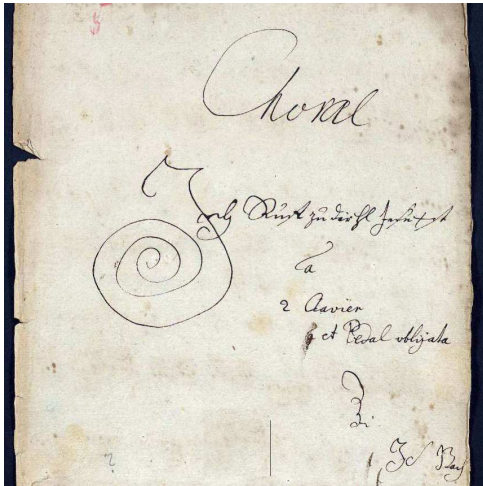 Choral
Ich Ruf zu dir H Jesu Xst
a
2 Clavier
et Pedal obligata
Di
J S Bach